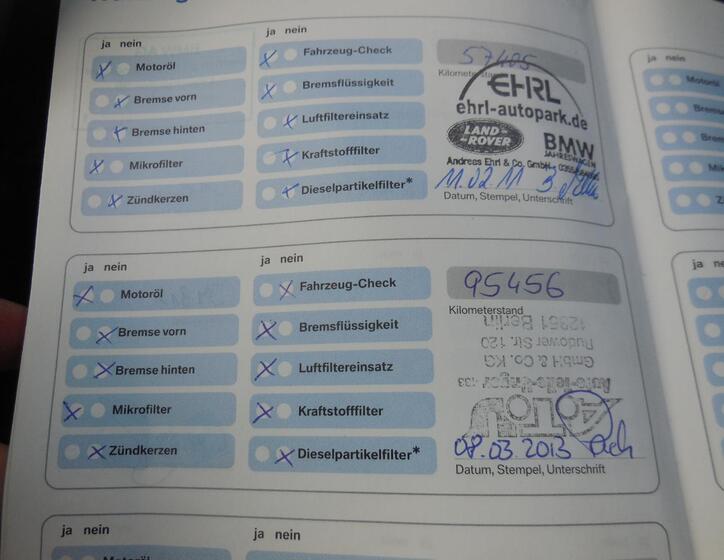 ja nein
Motoröl
Bremse vorn
Bremse hinten
Mikrofilter
Zündkerzen
ja nein
Fahrzeug-Check
Bremsflüssigkeit
Luftfiltereinsatz
Kraftstofffilter
Dieselpartikelfilter*
57405
Kilometerstand
EHRL
ehrl-autopark.de
LAND-ROVER
BMW
JAHRESWAGEN
Andreas Ehrl & Co. GmbH
11.02.11
Datum, Stempel, Unterschrift
ja nein
Motoröl
Bremse vorn
Bremse hinten
Mikrofilter
Zündkerzen
ja nein
Fahrzeug-Check
Bremsflüssigkeit
Luftfiltereinsatz
Kraftstofffilter
Dieselpartikelfilter*
95456
Kilometerstand
12351 Berlin
Rudower Str. 120
GmbH & Co. KG
08.03.2013
Datum, Stempel, Unterschrift
ja nein
Motoröl
ja nein
ja nein
Motoröl
Bremse
Bremse
Mik
Z
ja